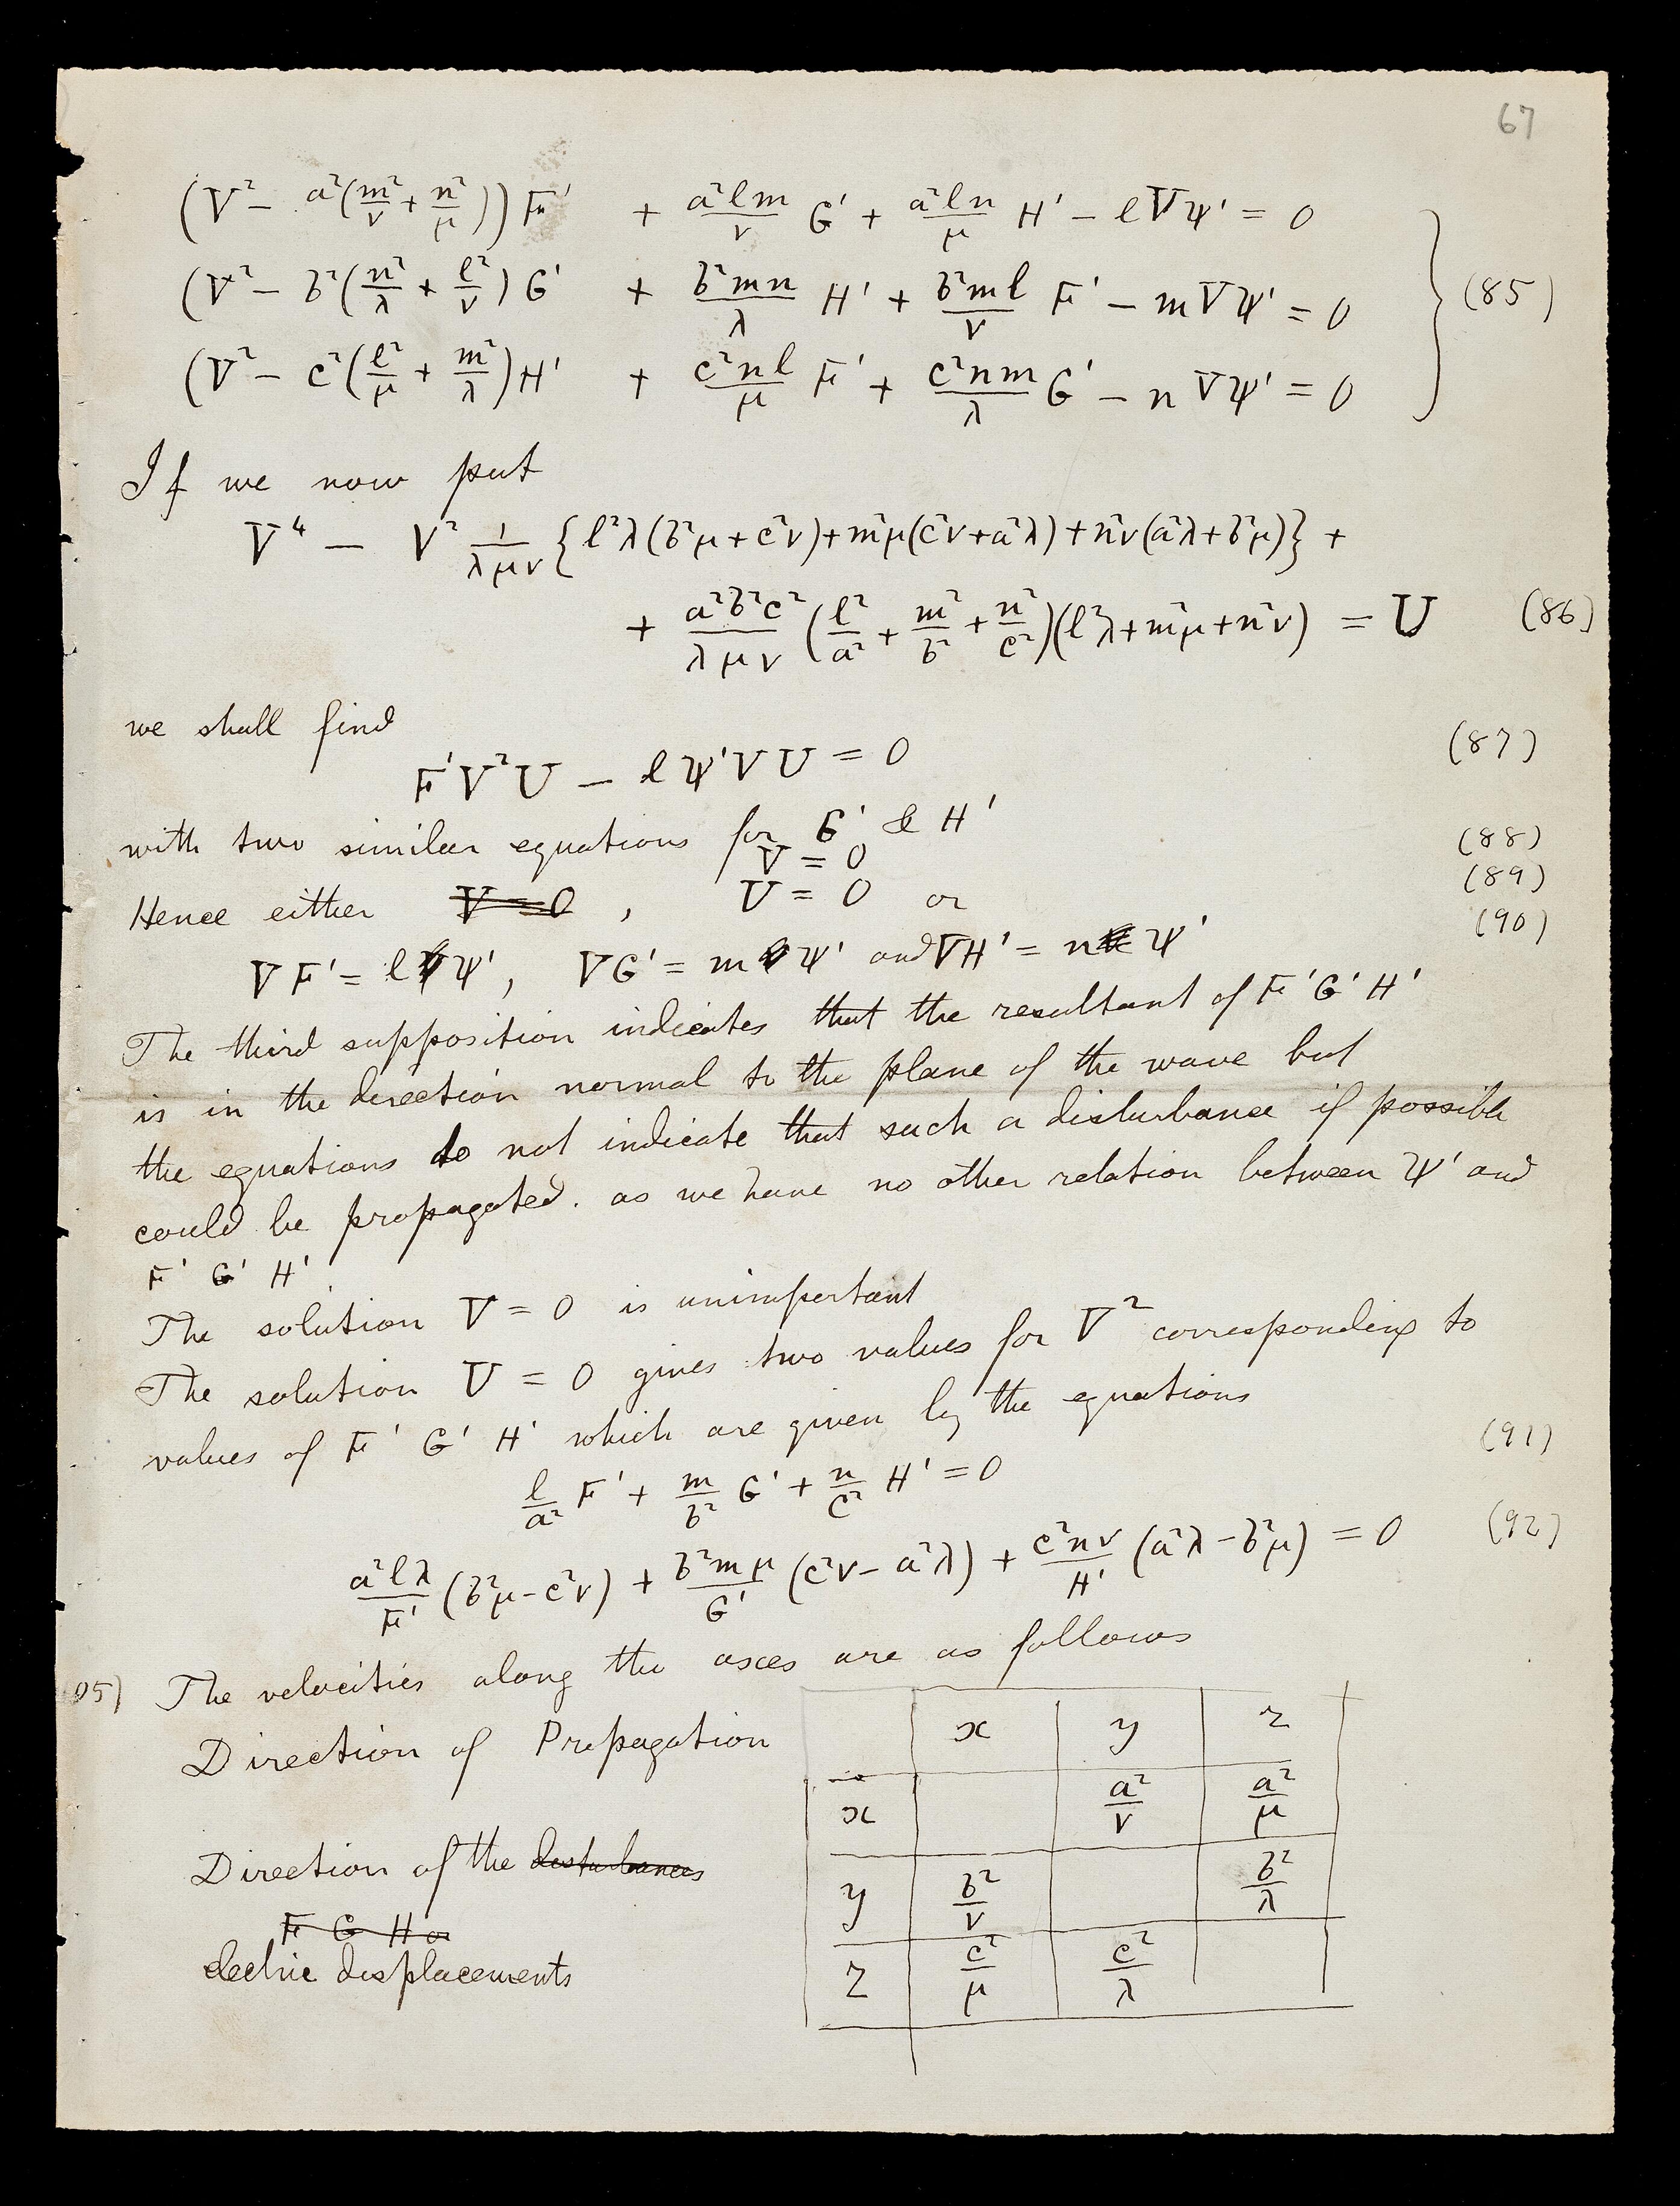 67
(V² − a²(m²/ν + n²/μ))F′ + a²lm/ν G′ + a²ln/μ H′ − lVΨ′ = 0
(V² − b²(n²/λ + l²/ν)G′ + b²mn/λ H′ + b²ml/ν F′ − mVΨ′ = 0 (85)
(V² − c²(l²/μ + m²/λ)H′ + c²nl/μ F′ + c²nm/λ G′ − nVΨ′ = 0
If we now put
V⁴ − V² 1/λμν {l²λ(b²μ+c²ν)+m²μ(c²ν+a²λ)+n²ν(a²λ+b²μ)} +
+ a²b²c²/λμν (l²/a² + m²/b² + n²/c²)(l²λ+m²μ+n²ν) = U (86)
we shall find
F′V²U − lΨ′VU = 0 (87)
with two similar equations for G′ & H′
V = 0 (88)
Hence either V=0 , U = 0 or (89)
VF′ = lΨ′, VG′ = mΨ′ and VH′ = nΨ′ (90)
The third supposition indicates that the resultant of F′ G′ H′
is in the direction normal to the plane of the wave but
the equations do not indicate that such a disturbance if possible
could be propagated. as we have no other relation between Ψ′ and
F′ G′ H′.
The solution V = 0 is unimportant
The solution U = 0 gives two values for V² corresponding to
values of F′ G′ H′ which are given by the equations
l/a² F′ + m/b² G′ + n/c² H′ = 0 (91)
a²lλ/F′ (b²μ−c²ν) + b²mμ/G′ (c²ν−a²λ) + c²nν/H′ (a²λ−b²μ) = 0 (92)
95) The velocities along the axes are as follows
Direction of Propagation
x y z
x a²/ν a²/μ
Direction of the disturbances
y b²/ν b²/λ
F G H or
electric displacements
z c²/μ c²/λ